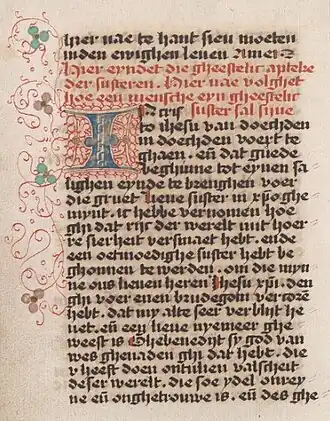 hier nae te hant sien moeten
in den ewighen leuen Amen
Hier eyndet die gheestelic apteke
der susteren. Hier nae volghet
hoe een mensche eyn gheestelic
suster sal sijne
to ihesu van doechden
in doechden voert te
ghaen. eñ dat guede
beghinne tot eynen sa
lighen eynde te brenghen voer
die gruet lieue suster in xp̄o ghe
mynt. ic hebbe vernomen hoe
ghi dat rijc der werelt mit hoer
re sierheit versmaet hebt. ende
een oetmoedighe suster hebt be
ghonnen te werden. om die myn
ne ons lieuen heren Ihesu xp̄i. den
ghi voer enen brudegom vercoren
hebt. dat my alte seer verblijt he
uet. eñ een lieue nyemeer ghe
weest is Ghebenedijt sy god van
wes ghenaden ghi dat hebt. die
v heeft doen ontulien valscheit
deser werelt. die soe ydel onrey
ne eñ onghetrouwe is. eñ des ghe